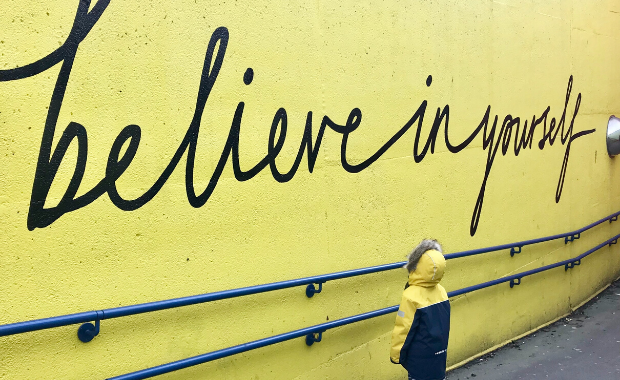 believe in yourself